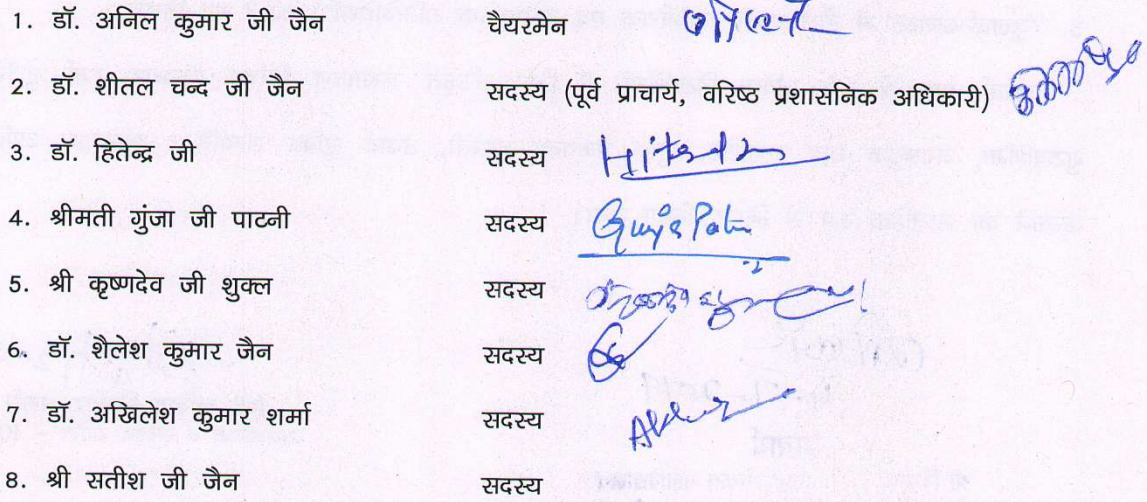 1. डॉ. अनिल कुमार जी जैन चैयरमेन
2. डॉ. शीतल चन्द जी जैन सदस्य (पूर्व प्राचार्य, वरिष्ठ प्रशासनिक अधिकारी)
3. डॉ. हितेन्द्र जी सदस्य
4. श्रीमती गुंजा जी पाटनी सदस्य
5. श्री कृष्णदेव जी शुक्ल सदस्य
6. डॉ. शैलेश कुमार जैन सदस्य
7. डॉ. अखिलेश कुमार शर्मा सदस्य
8. श्री सतीश जी जैन सदस्य